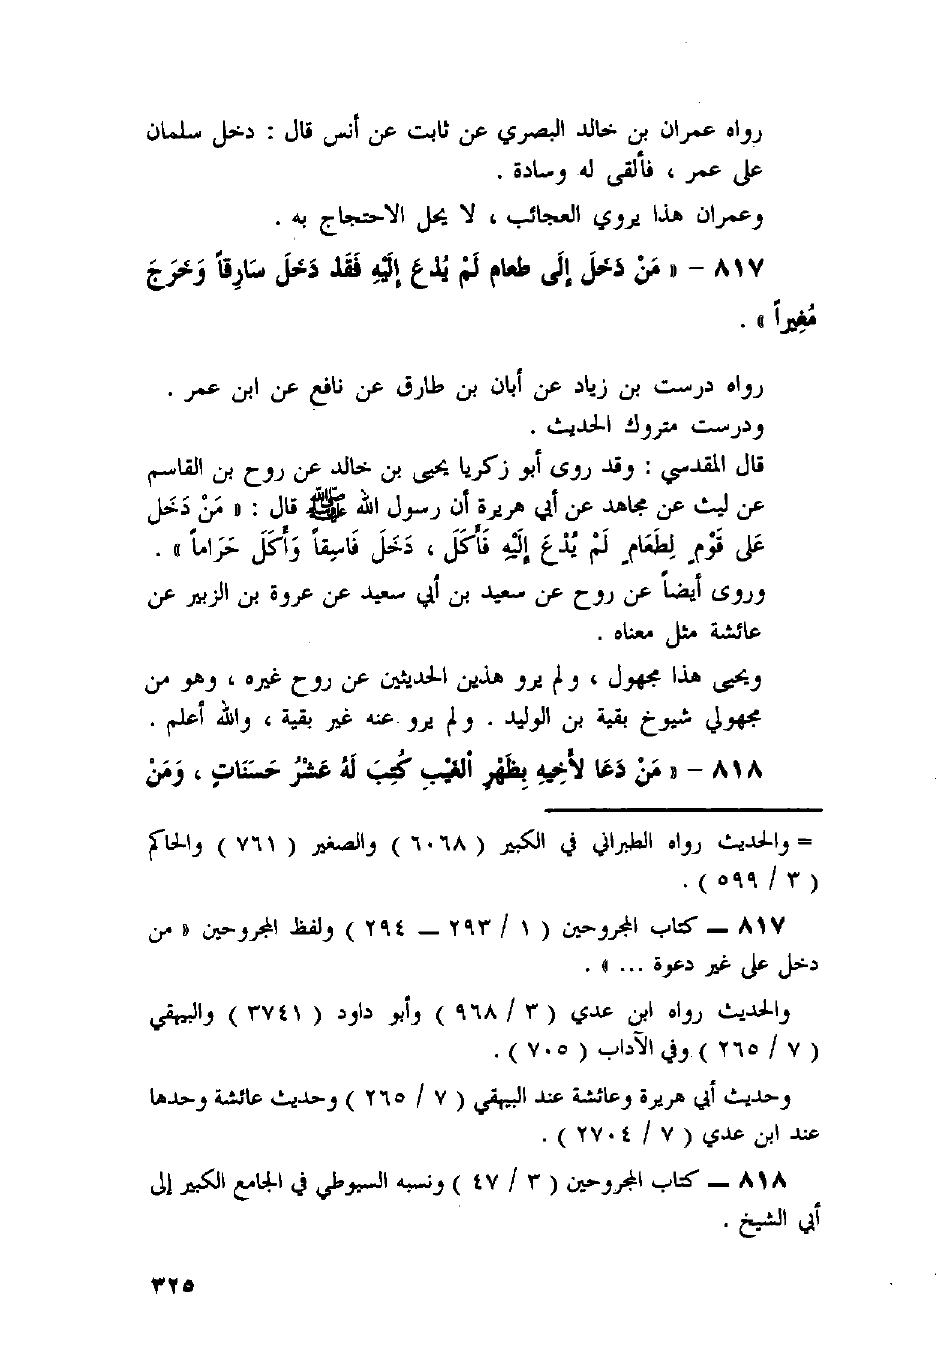 رواه عمران بن خالد البصري عن ثابت عن أنس قال : دخل سلمان
على عمر ، فألقى له وسادة .
وعمران هذا يروي العجائب ، لا يحل الاحتجاج به .
٨١٧ – « مَنْ دَخَلَ إِلَى طعام لَمْ يُدْعَ إِلَيْهِ فَقَد دَخَلَ سَارِقاً وَخَرَجَ
مُغِيراً » .
رواه درست بن زياد عن أبان بن طارق عن نافع عن ابن عمر .
ودرست متروك الحديث .
قال المقدسي : وقد روى أبو زكريا يحيى بن خالد عن روح بن القاسم
عن ليث عن مجاهد عن أبي هريرة أن رسول الله ﷺ قال : « مَنْ دَخَل
عَلى قَوْمٍ لِطَعَامٍ لَمْ يُدْعَ إِلَيْهِ فَأَكَلَ ، دَخَلَ فَاسِقاً وَأَكَلَ حَرَاماً » .
وروى أيضاً عن روح عن سعيد بن أبي سعيد عن عروة بن الزبير عن
عائشة مثل معناه .
ويحيى هذا مجهول ، ولم يرو هذين الحديثين عن روح غيره ، وهو من
مجهولي شيوخ بقية بن الوليد . ولم يرو عنه غير بقية ، والله أعلم .
٨١٨ – « مَنْ دَعَا لأَخِيهِ بِظَهْرِ الغَيْبِ كُتِبَ لَهُ عَشْرُ حَسَنَاتٍ ، وَمَنْ
= والحديث رواه الطبراني في الكبير ( ٦٠٦٨ ) والصغير ( ٧٦١ ) والحاكم
( ٣ / ٥٩٩ ) .
٨١٧ – كتاب المجروحين ( ١ / ٢٩٣ – ٢٩٤ ) ولفظ المجروحين « من
دخل على غير دعوة ... » .
والحديث رواه ابن عدي ( ٣ / ٩٦٨ ) وأبو داود ( ٣٧٤١ ) والبيهقي
( ٧ / ٢٦٥ ) وفي الآداب ( ٧٠٥ ) .
وحديث أبي هريرة وعائشة عند البيهقي ( ٧ / ٢٦٥ ) وحديث عائشة وحدها
عند ابن عدي ( ٧ / ٢٧٠٤ ) .
٨١٨ – كتاب المجروحين ( ٣ / ٤٧ ) ونسبه السيوطي في الجامع الكبير إلى
أبي الشيخ .
٣٢٥